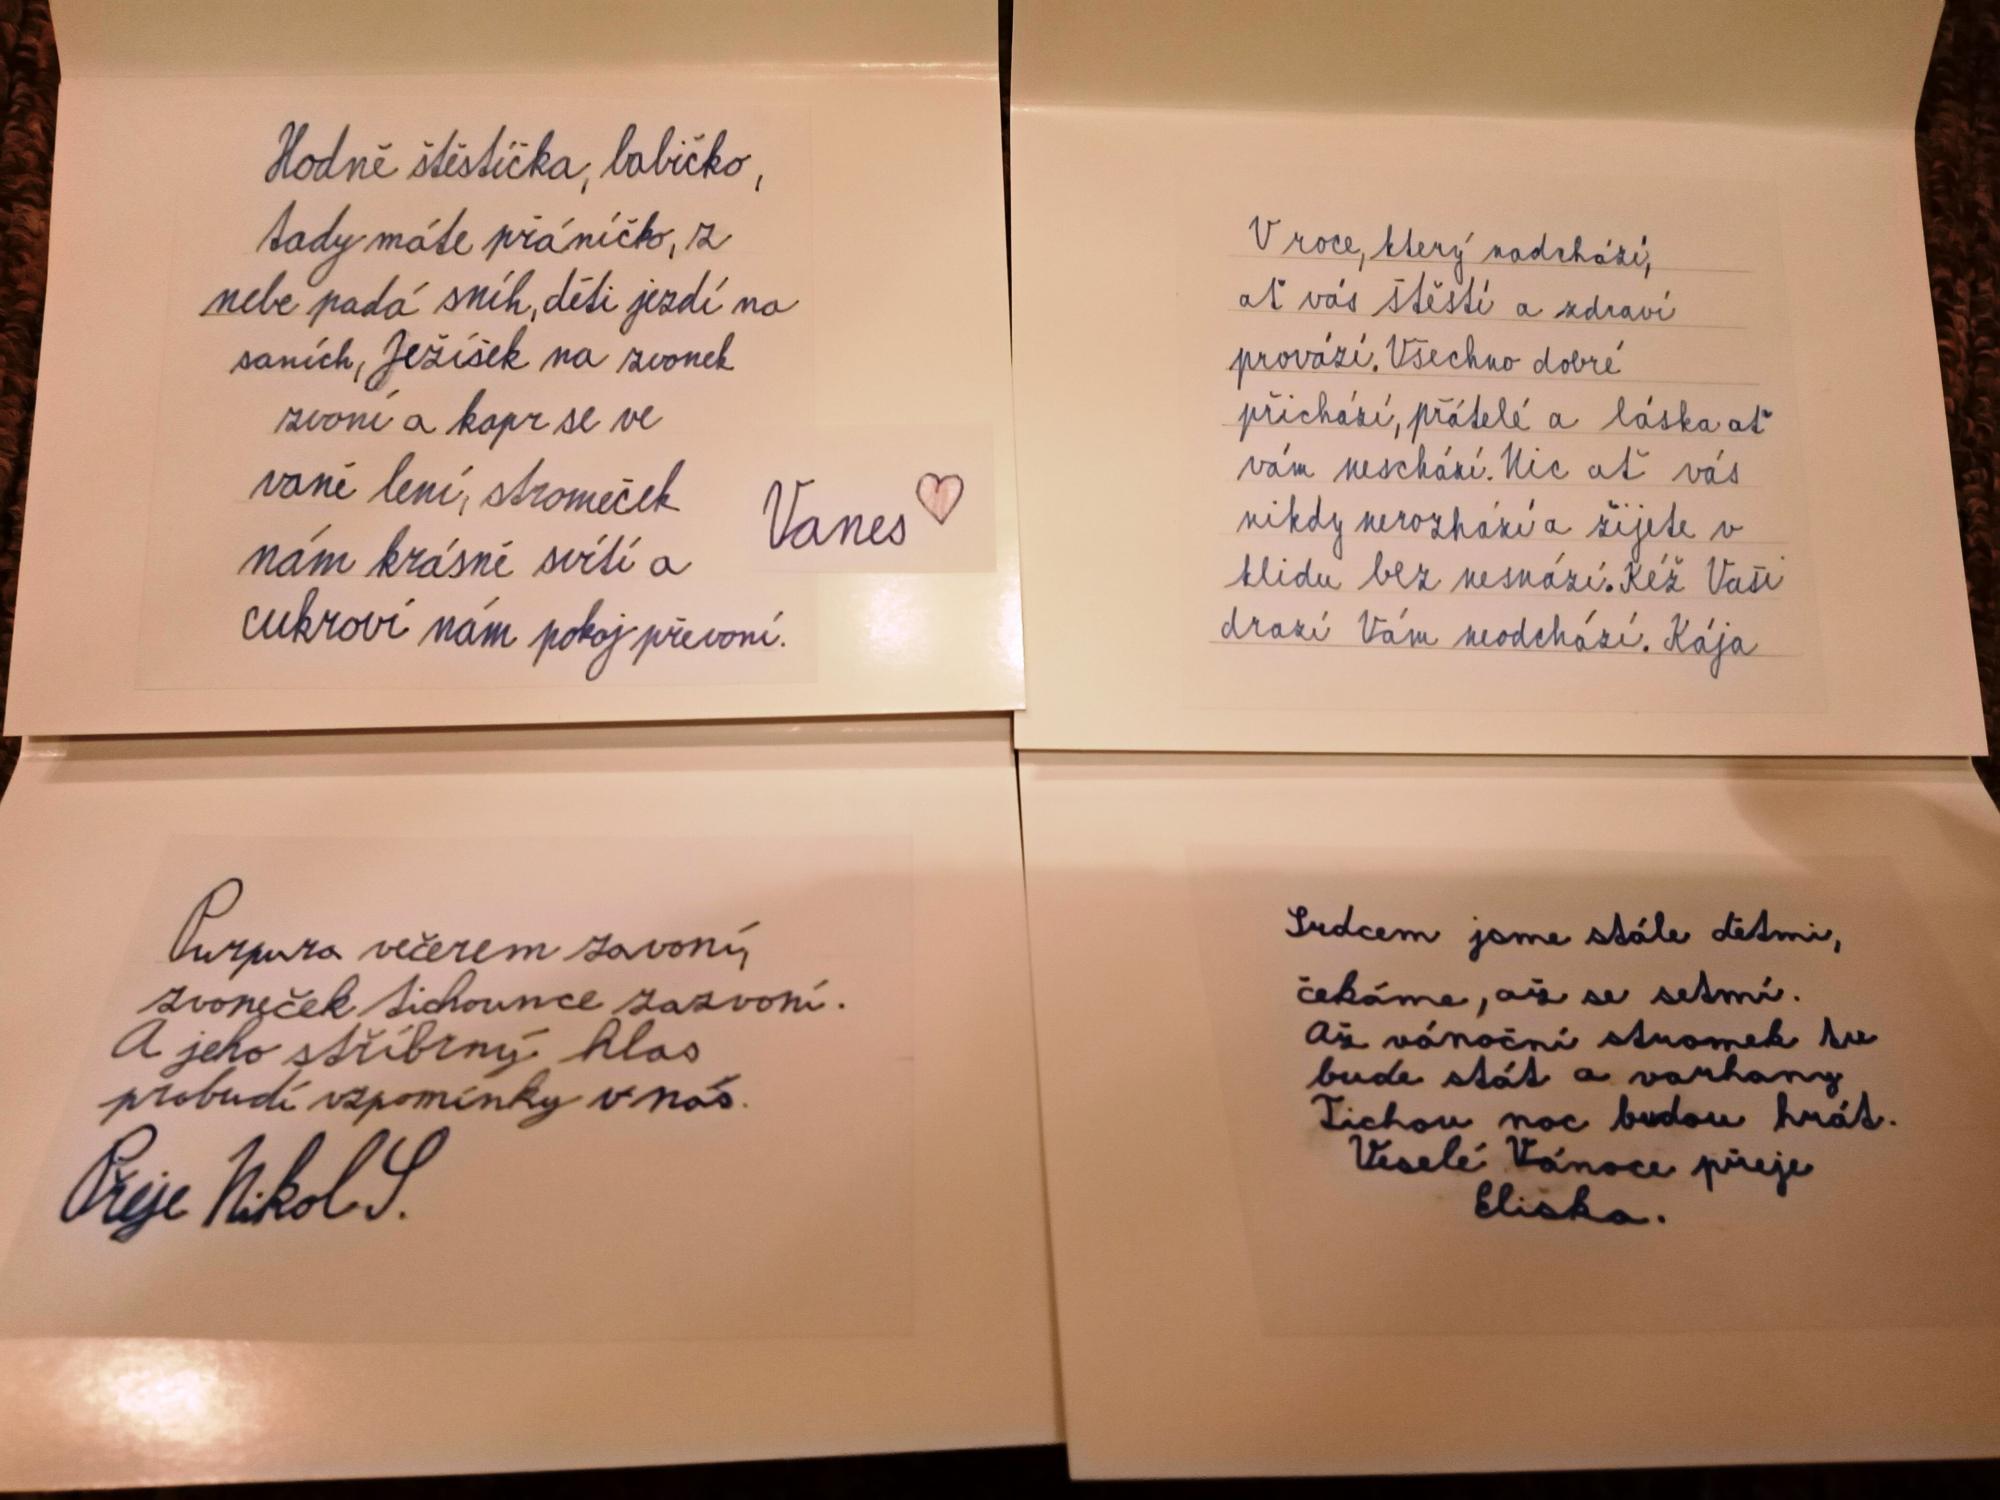 Hodně štěstíčka, babičko,
tady máte přáníčko, z
nebe padá sníh, děti jezdí na
saních, Ježíšek na zvonek
zvoní a kapr se ve
vaně lení, stromeček
nám krásně svítí a
cukroví nám pokoj převoní.
Vanes
V roce, který nadchází,
ať vás štěstí a zdraví
provází. Všechno dobré
přichází, přátelé a láska ať
vám neschází. Nic ať vás
nikdy nerozhází a žijete v
klidu bez nesnází. Kéž Vaši
drazí Vám neodchází. Kája
Purpura večerem zavoní,
zvoneček tichounce zazvoní.
A jeho stříbrný hlas
probudí vzpomínky v nás.
Přeje Nikol S.
Srdcem jsme stále dětmi,
čekáme, až se setmí.
Až vánoční stromek tu
bude stát a varhany
Tichou noc budou hrát.
Veselé Vánoce přeje
Eliška.